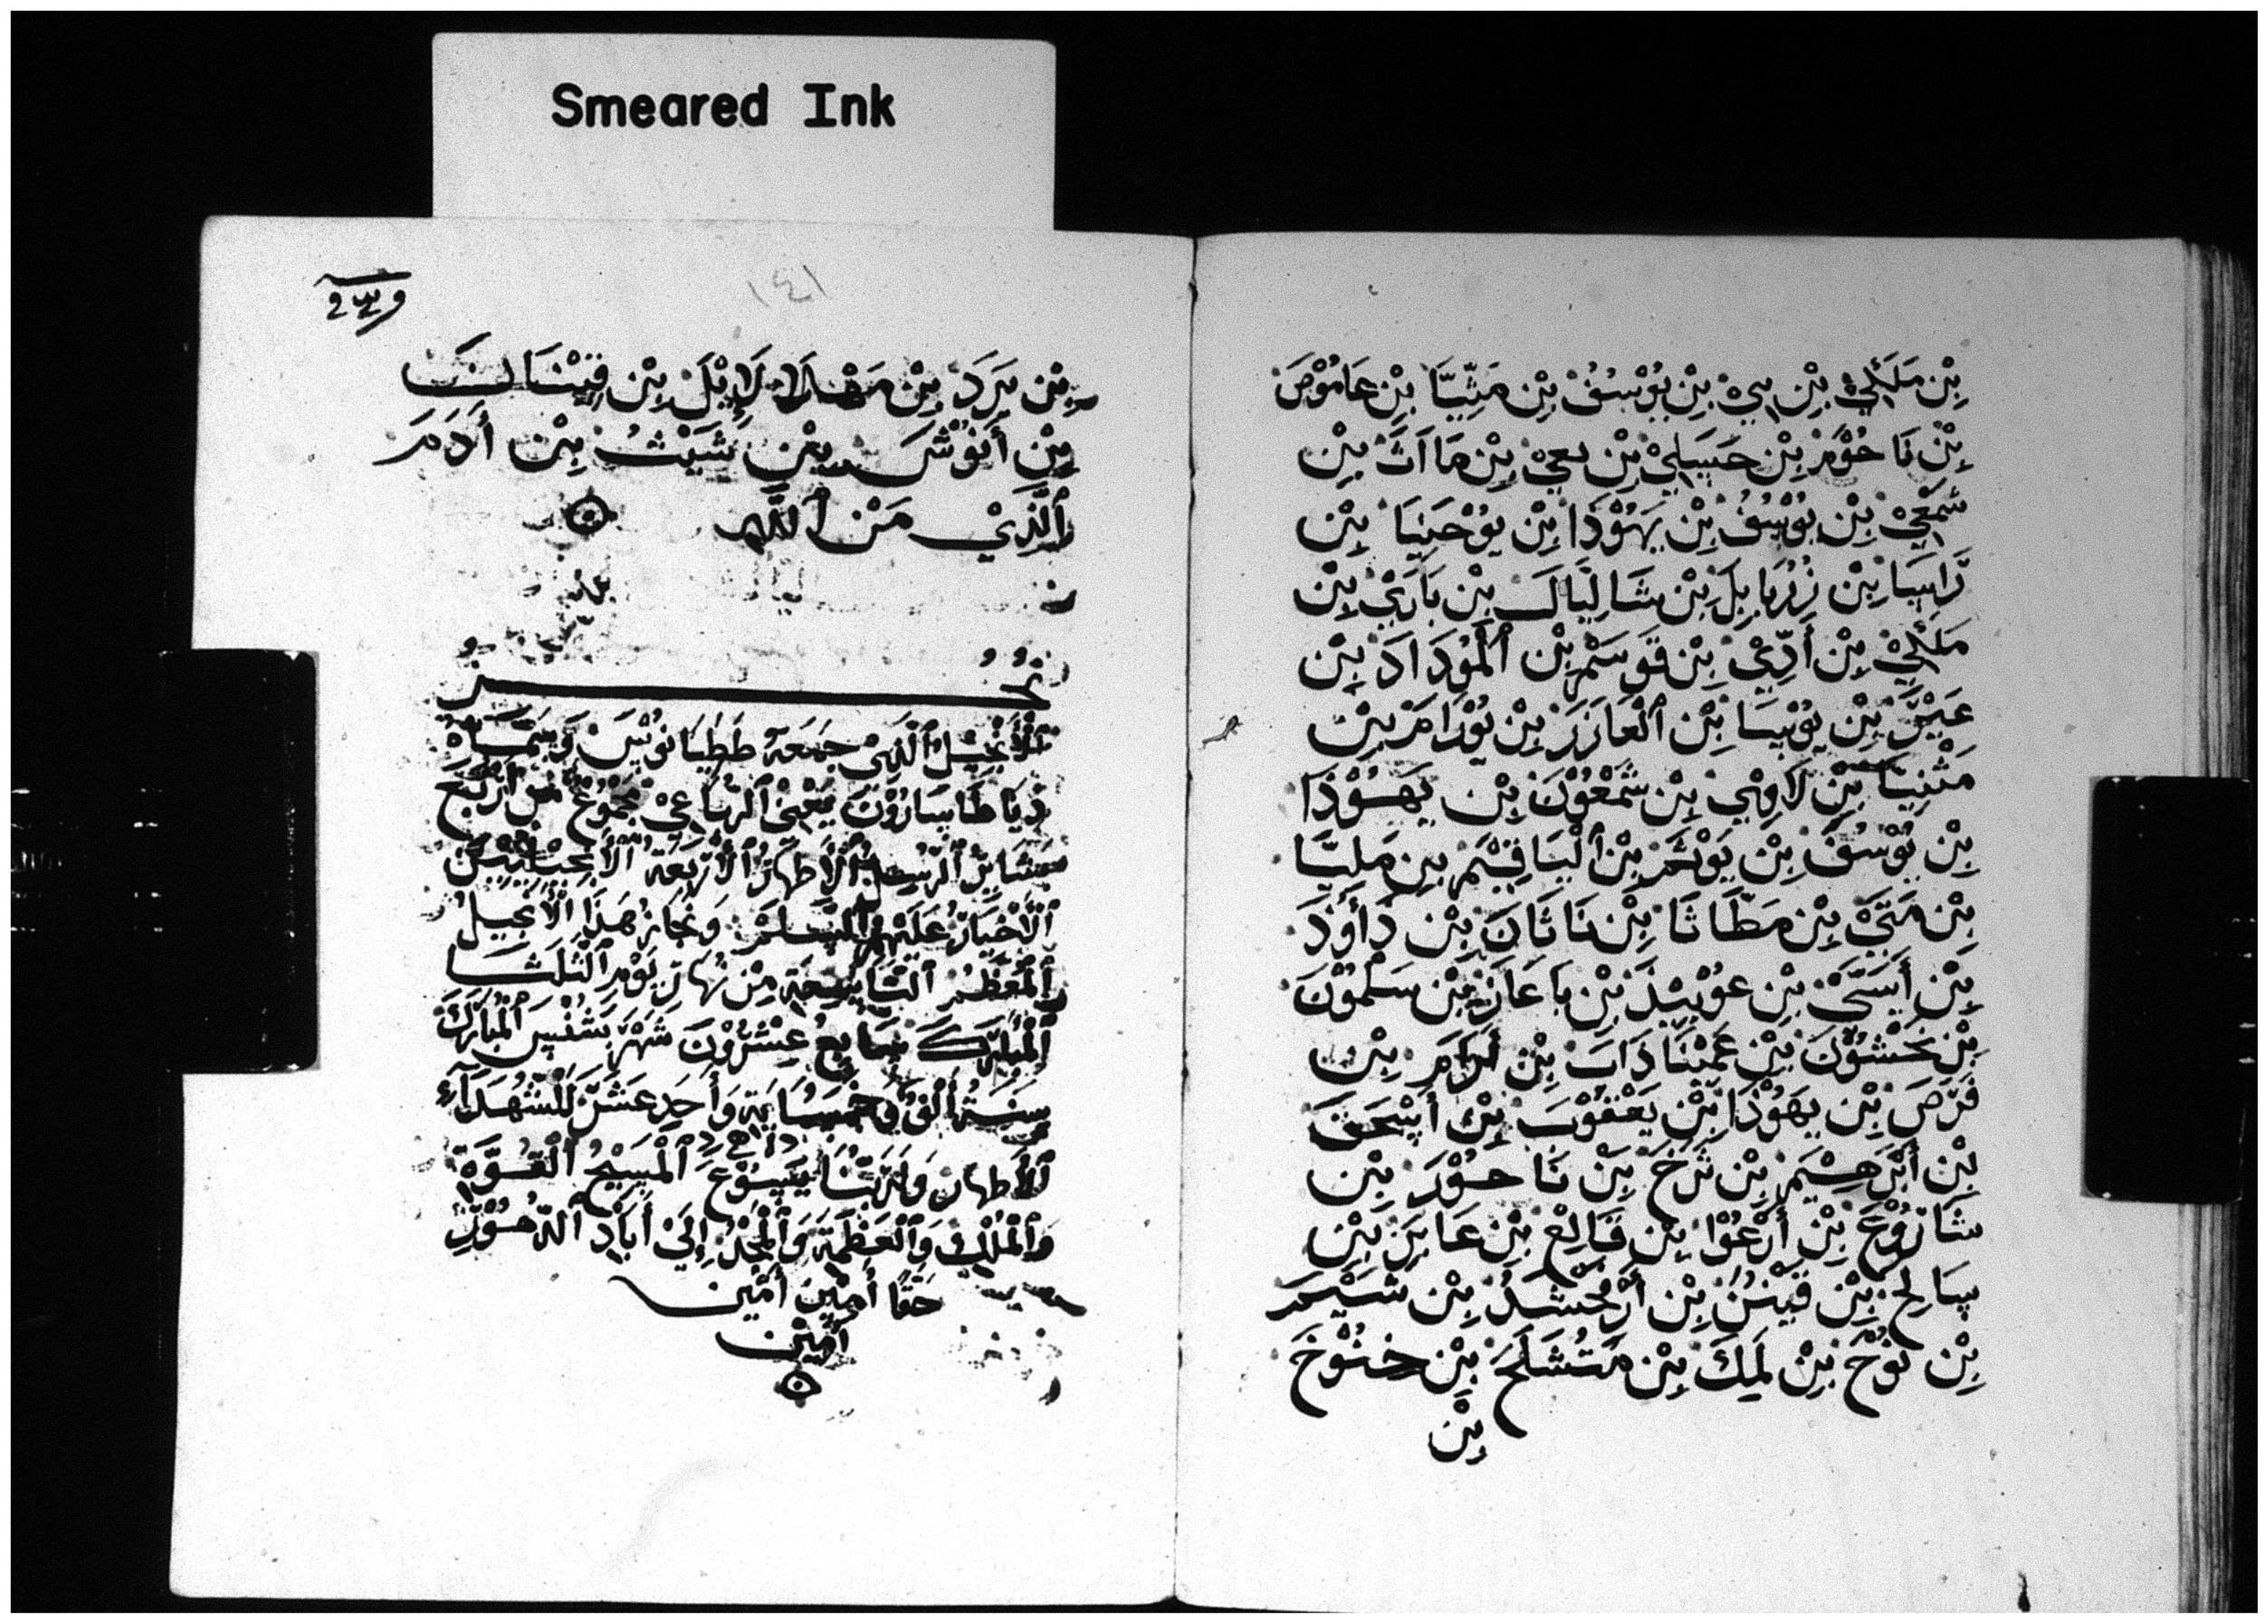 Smeared Ink
بِنْ مَلَئْلِيْ بِنْ يُوْسُفْ بِنْ مَتِّيَّا بِنْ عَامُوْصَ
بِنْ نَاحُوْمَ بِنْ حَسِيلِيْ بِنْ نعي بِنْ مَااَتَ بِنْ
شَمْعِيْ بِنْ يُوْسُفْ بِنْ يَهُوْدَا بِنْ يُوْحَنِيَا بِنْ
رَاسِيَا بِنْ زُرُبَابِلَ بِنْ شَالِتَالَ بِنْ نَارِيْ بِنْ
مَلَئْلِيْ بِنْ أَدِّيْ بِنْ قَوسَمْ بِنْ ٱلْمُوْدَادَ بِنْ
عَيْرَ بِنْ يُوْسَا بِنْ ٱلْعَازَرَ بِنْ يُوْرَامَ بِنْ
مَتْنِيَا بِنْ لَاوِيْ بِنْ شَمْعُوْنَ بِنْ يَهُوْذَا
بِنْ يُوْسُفَ بِنْ يُوْنَمَ بِنْ ٱلْيَاقِيْمَ بِنْ مَلِيَّا
بِنْ مَتَيْ بِنْ مَطَّاثَا بِنْ نَاثَانَ بِنْ دَاوُدَ
بِنْ أَيَسَّيْ بِنْ عُوْبِيْدَ بِنْ بَاعَازَ بِنْ سَلْمُوْنَ
بِنْ نَحْشُوْنَ بِنْ عَمِيْنَادَابَ بِنْ أَرَامَ بِنْ
فَرَصَ بِنْ يَهُوْذَا بِنْ يَعْقُوْبَ بِنْ أَيْسْحَقَ
بِنْ أَبْرَهِيْمَ بِنْ تَرَخَ بِنْ نَاحُوْرَ بِنْ
شَارُوْعَ بِنْ أَرْعُوْا بِنْ فَالِغْ بِنْ عَابِرَ بِنْ
سَالِحْ بِنْ قِيْنَنْ بِنْ أَرْفَخْشَدْ بِنْ سَيْمَ
بِنْ نُوْحَ بِنْ لَمِكَ بِنْ مَتُشَلَحَ بِنْ خَنُوْخَ
بِنْ
١٤١
بِنْ يَرَدَ بِنْ مَهْلَالَإِيْلَ بِنْ قِيْنَانَ
بِنْ أَنُوْشَ بِنْ شَيْثُ بِنْ أَدَمَ
ٱلَّذِيْ مَنْ ٱللَّهِ
ٱلْأَنْجِيْلُ ٱلَّذِيْ جَمَعَهُ طَطِيَانُوْسَ وَسَمَّاهُ
دِيَاطَاسَارُوْنَ يَعْنِيْ ٱلرُبَاعِيْ مَجْمُوْعُ مِنْ أَرْبَعَ
بَشَايِرْ ٱلرُسُلْ ٱلْأَطْهَارُ ٱلْأَرْبَعَةُ ٱلْأَنْجِيْلِيِّيْنَ
ٱلْأَخْيَارُ عَلَيْهُمْ ٱلسَلَامُ وَنَجَازُ هَذَا ٱلْأَنْجِيلُ
ٱلْمُعَظَّمُ ٱلتَاسِعَةِ مِنْ نَهَارِ يَوْمِ ٱلثَلَثَا
ٱلْمُبَارَكَ سَابِعُ عِشْرُوْنَ شَهْرَ بَشَنْسَ ٱلْمُبَارَكَ
سَنَةُ أَلْفُ وَخَمْسُمَايَةِ وَأَحَدِعَشَرَ لِلشُهَدَآءِ
ٱلْأَطْهَارْ وَلِرَبِّنَا يَسُوْعَ ٱلْمَسِيْحُ ٱلْقُوَّةُ
وَٱلْمُلْكُ وَٱلْعَظْمَةُ وَٱلْمَجْدُ إِلَيْ أَبَادْ ٱلدُهُوْرِ
حَقًا أَمِيْنَ أَمْيْنَ
أَمِيْنَ